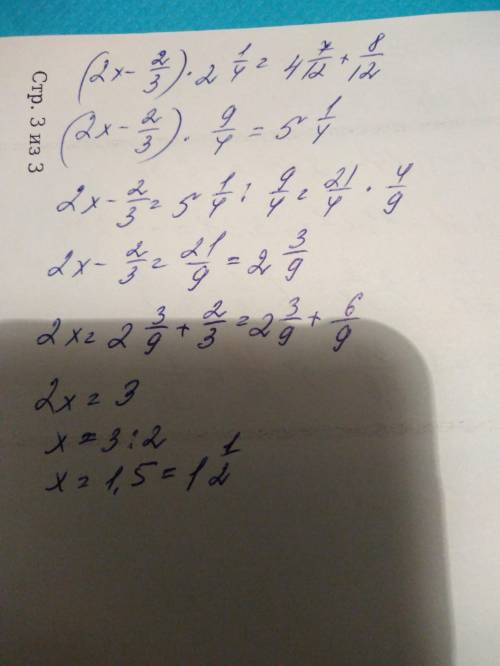 (2x - 2/3) · 2 1/4 = 4 7/12 + 8/12
(2x - 2/3) · 9/4 = 5 1/4
2x - 2/3 = 5 1/4 : 9/4 = 21/4 · 4/9
2x - 2/3 = 21/9 = 2 3/9
2x = 2 3/9 + 2/3 = 2 3/9 + 6/9
2x = 3
x = 3 : 2
x = 1,5 = 1 1/2
Стр. 3 из 3